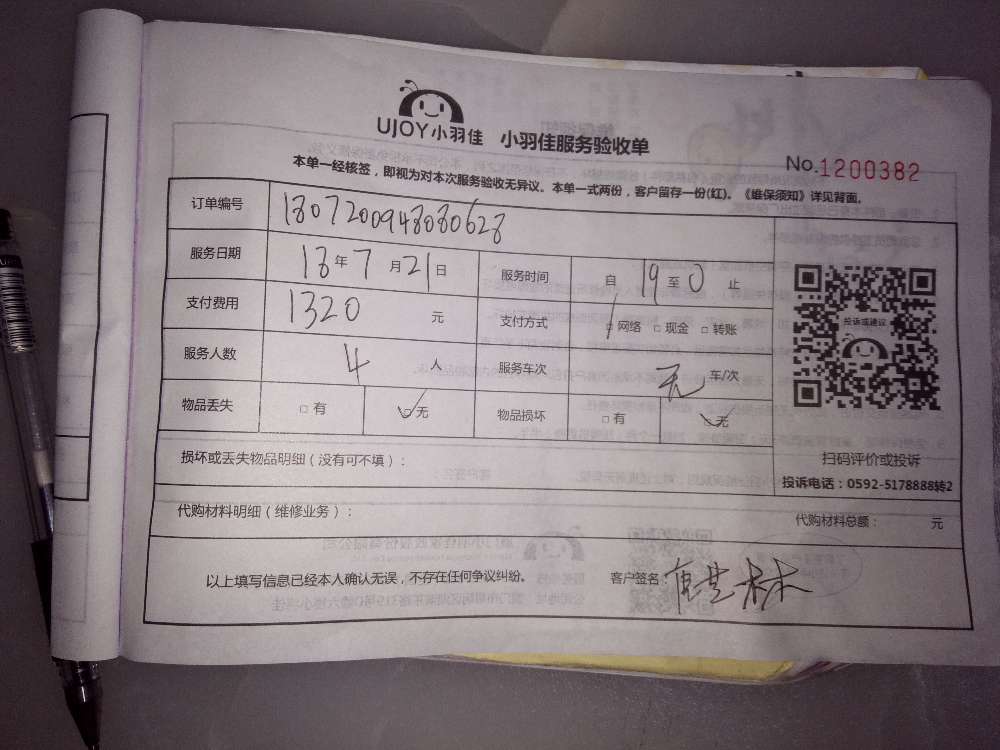 UJOY小羽佳 小羽佳服务验收单
No.1200382
本单一经核签，即视为对本次服务验收无异议。本单一式两份，客户留存一份(红)。《维保须知》详见背面。
订单编号 1807200948080628
服务日期 18年7月21日 服务时间 自19至0止
支付费用 1320元 支付方式 □网络 □现金 □转账
服务人数 4人 服务车次 无 车/次
物品丢失 □有 □无 物品损坏 □有 □无
投诉或建议
损坏或丢失物品明细（没有可不填）：
扫码评价或投诉
投诉电话：0592-5178888转2
代购材料明细（维修业务）： 代购材料总额： 元
以上填写信息已经本人确认无误，不存在任何争议纠纷。 客户签名：